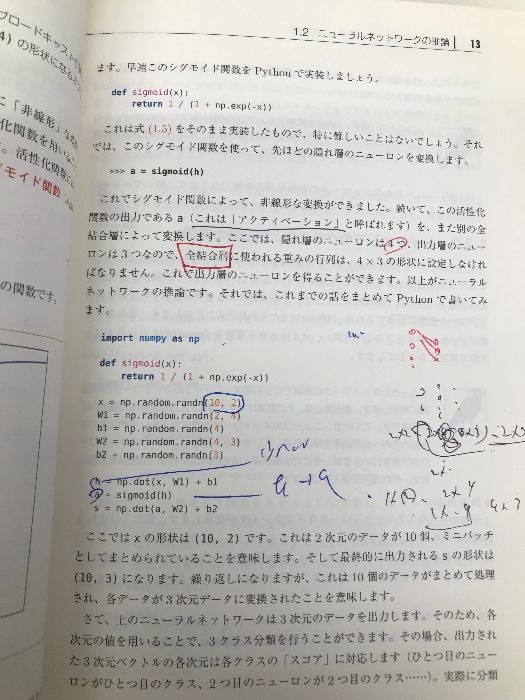 1.2 ニューラルネットワークの推論 13
ます。早速このシグモイド関数を Python で実装しましょう。
def sigmoid(x):
return 1 / (1 + np.exp(-x))
これは式 (1.5) をそのまま実装したもので、特に難しいことはないでしょう。それ
では、このシグモイド関数を使って、先ほどの隠れ層のニューロンを変換します。
>>> a = sigmoid(h)
これでシグモイド関数によって、非線形な変換ができました。続いて、この活性化
関数の出力である a（これは「アクティベーション」と呼ばれます）を、また別の全
結合層によって変換します。ここでは、隠れ層のニューロンは 4 つ、出力層のニュー
ロンは 3 つなので、全結合層に使われる重みの行列は、4 × 3 の形状に設定しなけれ
ばなりません。これで出力層のニューロンを得ることができます。以上がニューラル
ネットワークの推論です。それでは、これまでの話をまとめて Python で書いてみ
ます。
import numpy as np
def sigmoid(x):
return 1 / (1 + np.exp(-x))
x = np.random.randn(10, 2)
W1 = np.random.randn(2, 4)
b1 = np.random.randn(4)
W2 = np.random.randn(4, 3)
b2 = np.random.randn(3)
h = np.dot(x, W1) + b1
a = sigmoid(h)
s = np.dot(a, W2) + b2
ここでは x の形状は (10, 2) です。これは 2 次元のデータが 10 個、ミニバッチ
としてまとめられていることを意味します。そして最終的に出力される s の形状は
(10, 3) になります。繰り返しになりますが、これは 10 個のデータがまとめて処理
され、各データが 3 次元データに変換されたことを意味します。
さて、上のニューラルネットワークは 3 次元のデータを出力します。そのため、各
次元の値を用いることで、3 クラス分類を行うことができます。その場合、出力され
た 3 次元ベクトルの各次元は各クラスの「スコア」に対応します（ひとつ目のニュー
ロンがひとつ目のクラス、2 つ目のニューロンが 2 つ目のクラス……）。実際に分類